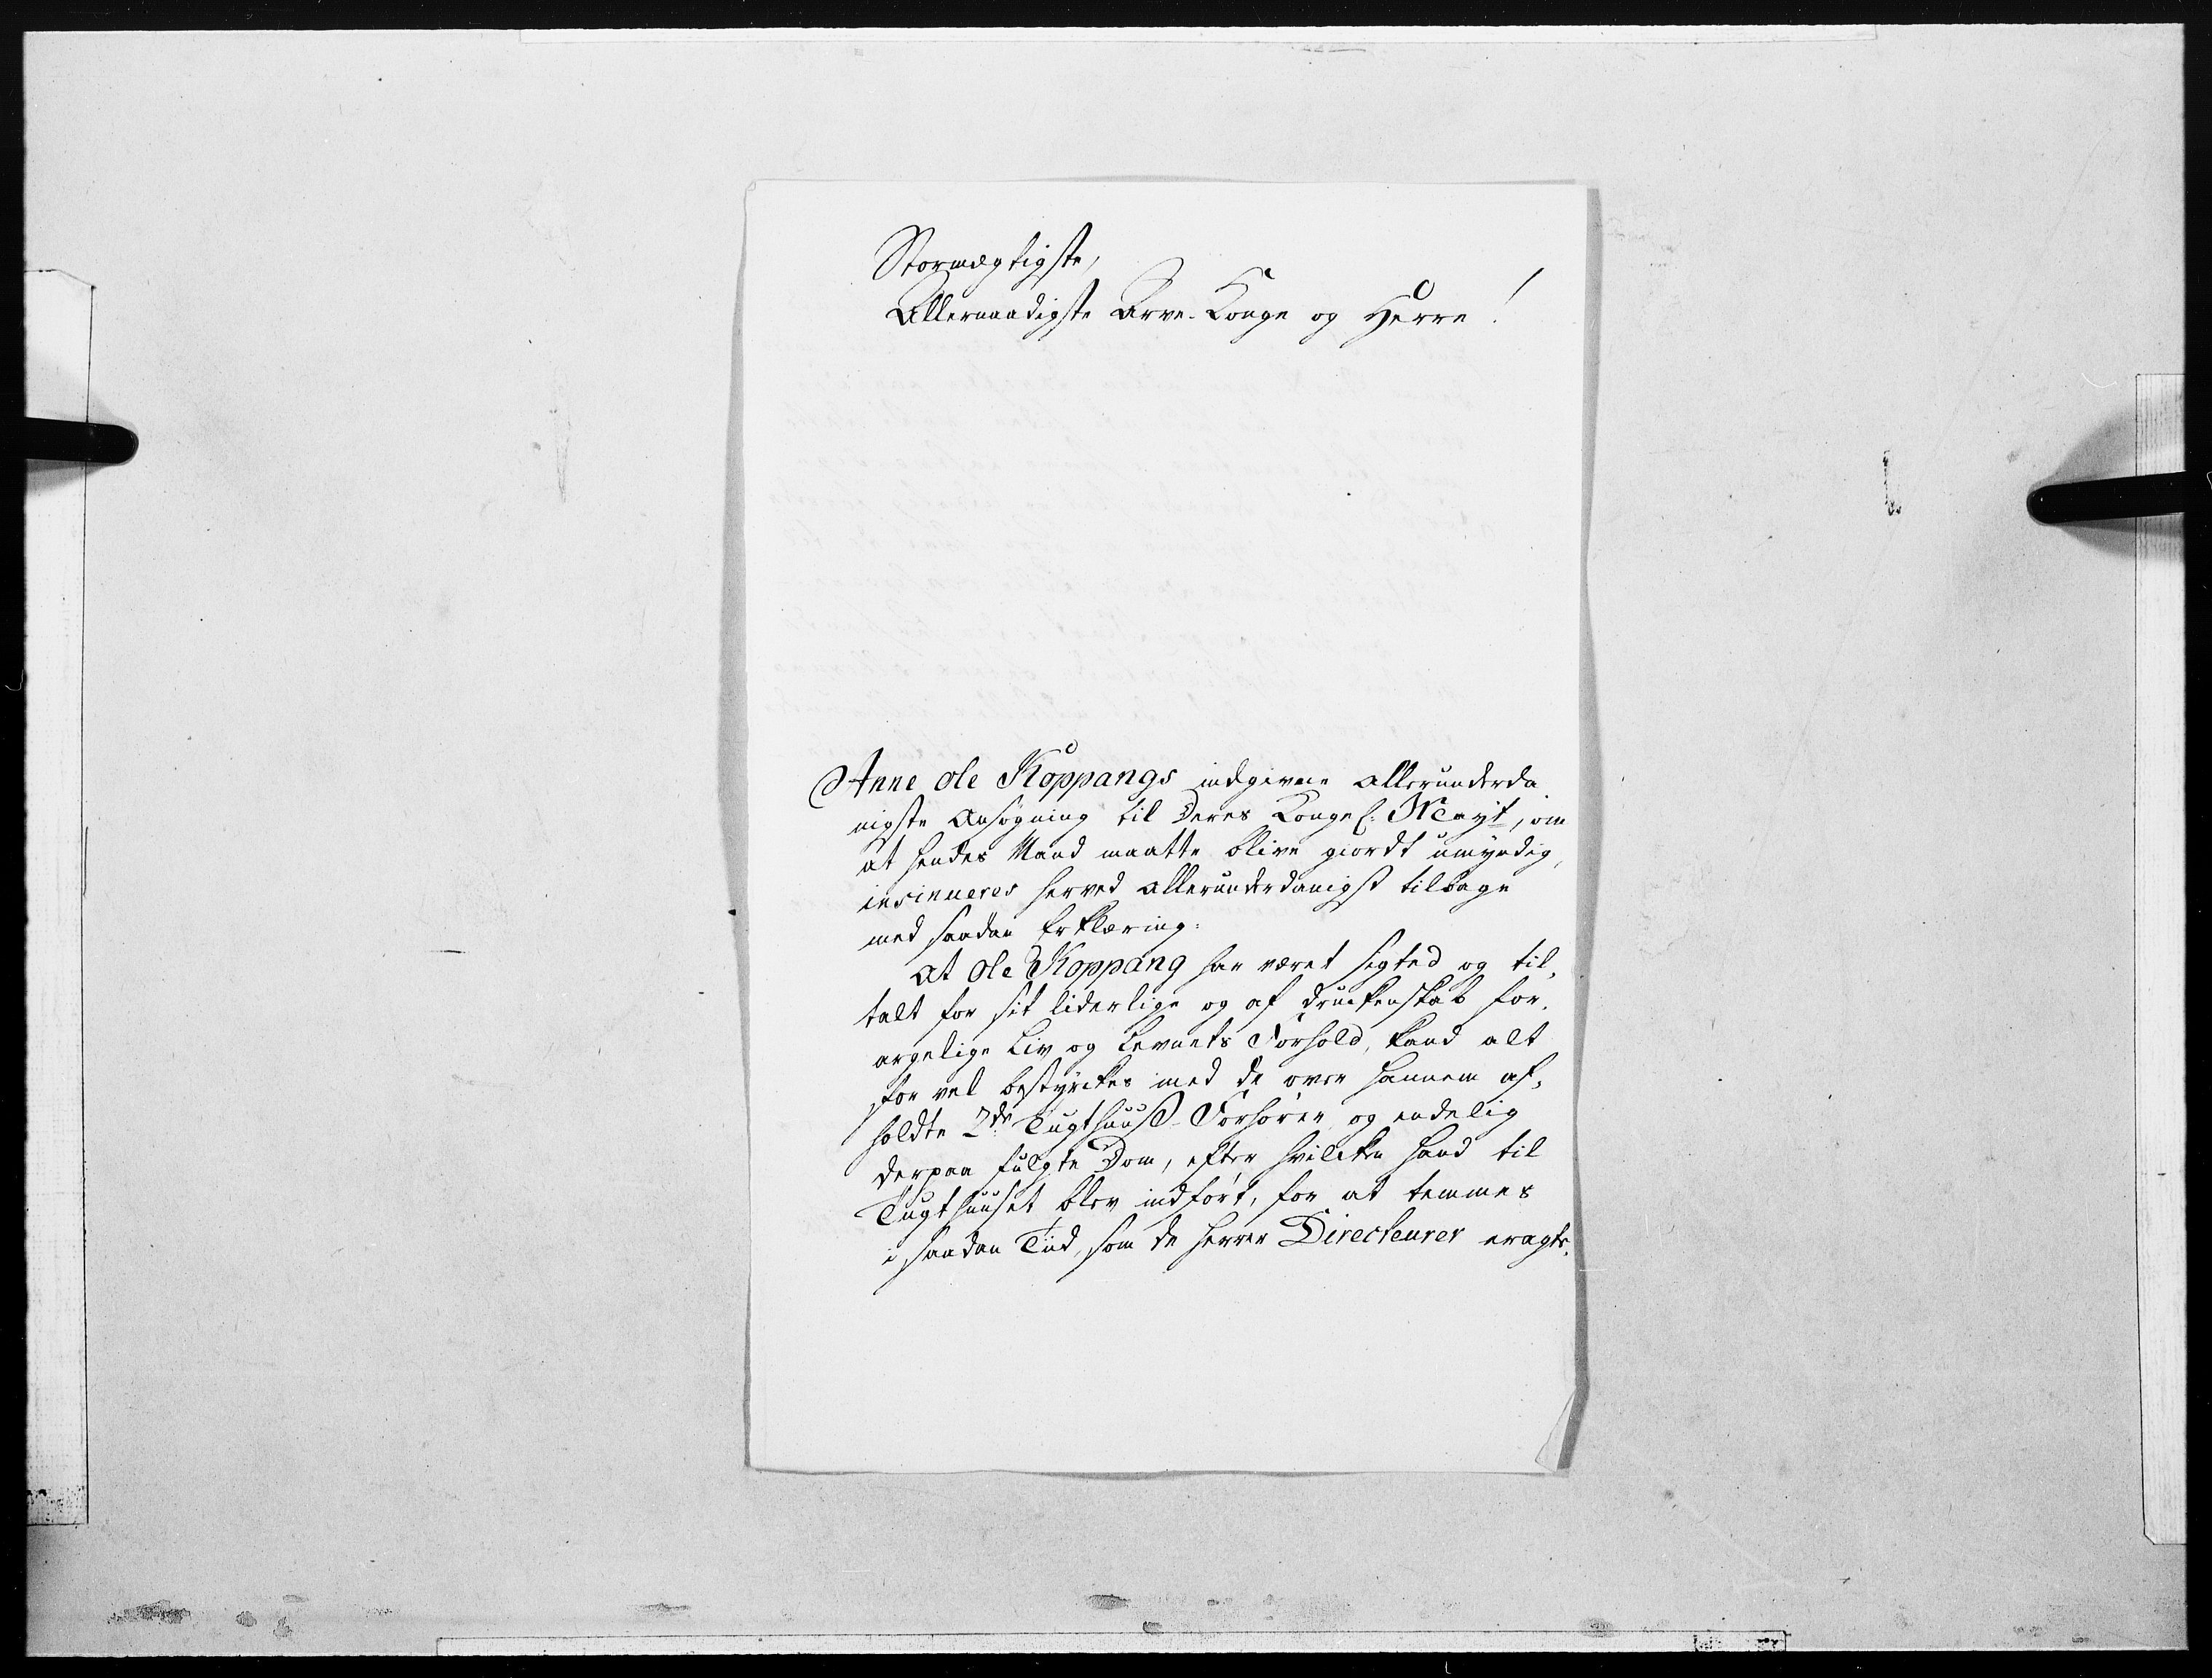 Stormægtigste,
Allernaadigste Arve-Konge og Herre!
Anne Ole Koppangs indgivne allerunderda
nigste Ansøgning til Deres Kongel: Mayt, om
at hendes Mand maatte blive giordt umyndig,
insinueres herved allerunderdanigst tilbage
med saadan Erklæring:
At Ole Koppang har været sigted og til,
talt for sit liderlige og af druckenskab for,
argelige Liv og Levnets Forhold, kand alt
for vel bestyrckes med de over hannem af,
holdte 2de Tugthuus-Forhører, og endelig
derpaa fulgte Dom, efter hvilcken hand til
Tugthuuset blev indført, for at temmes
i saadan Tiid, som de Herrer Directeurer eragte,